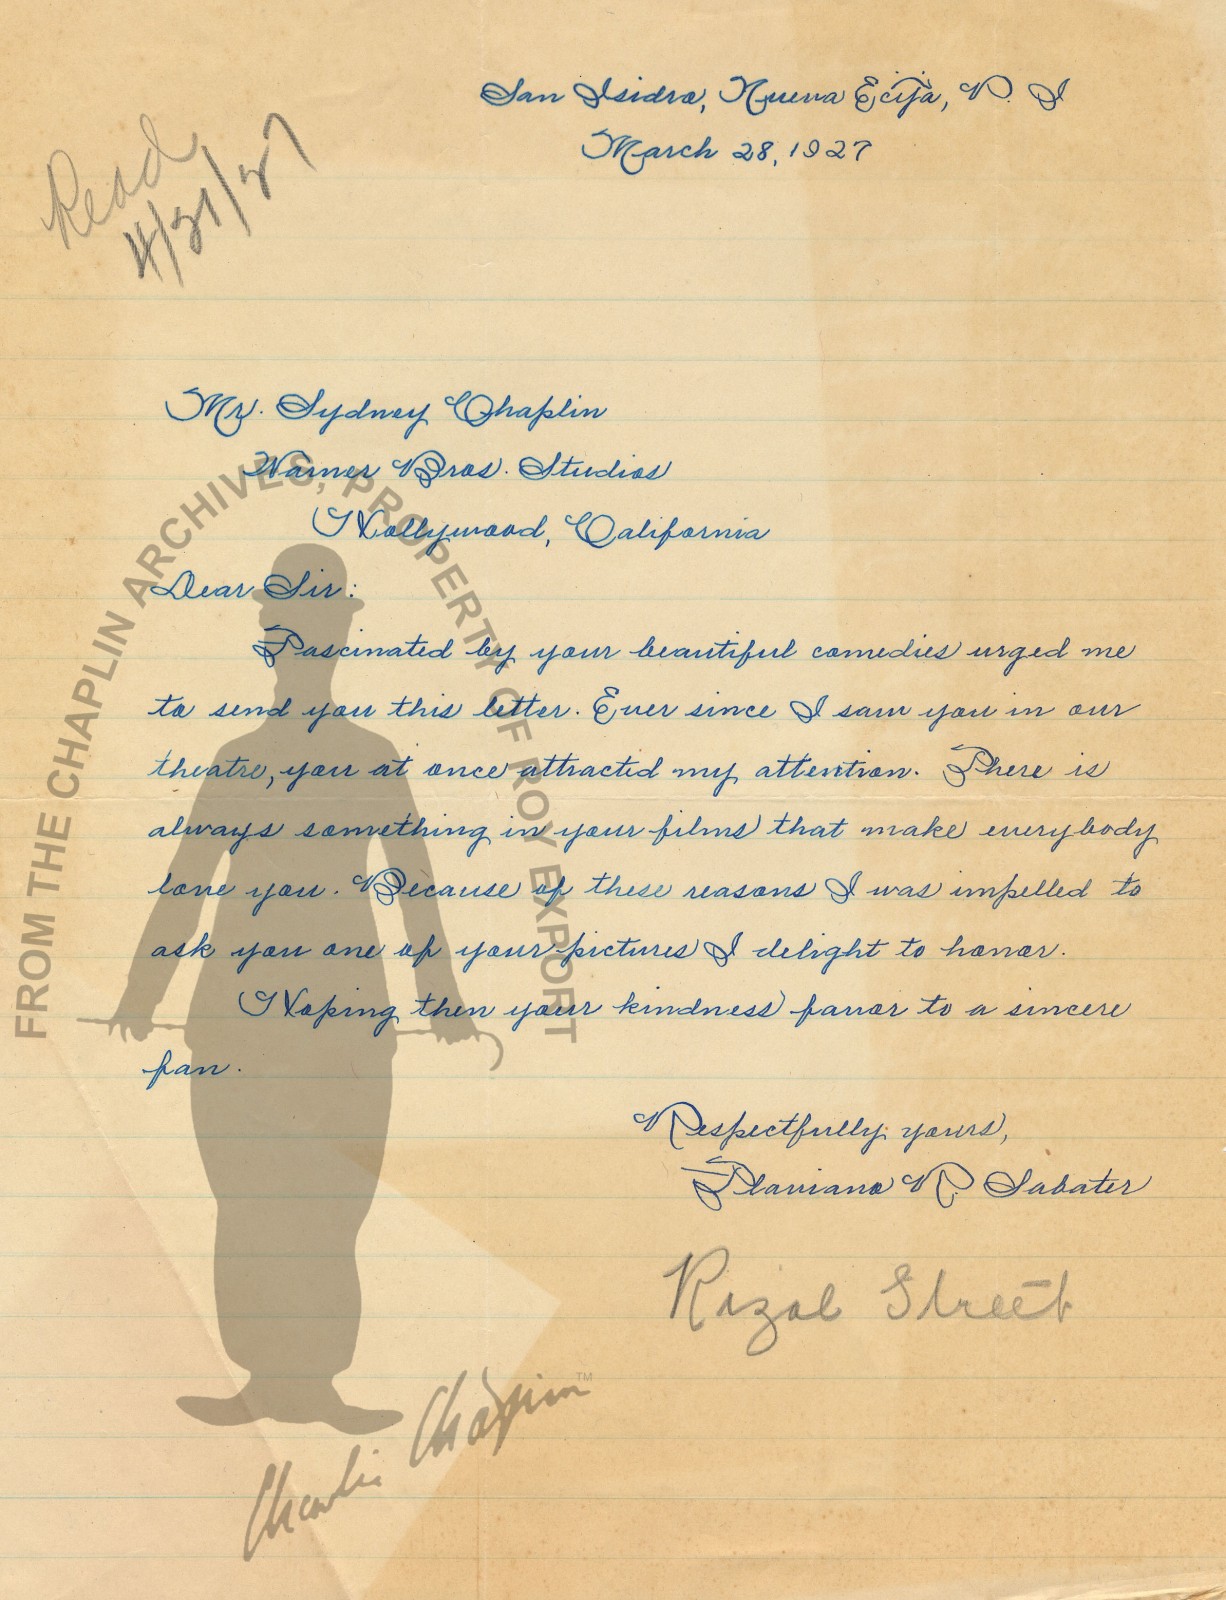 San Isidro, Nueva Ecija, P. I
March 28, 1927
Read
4/31/27
Mr. Sydney Chaplin
Warner Bros. Studios
Hollywood, California
Dear Sir:
Fascinated by your beautiful comedies urged me
to send you this letter. Ever since I saw you in our
theatre, you at once attracted my attention. There is
always something in your films that make everybody
love you. Because of these reasons I was impelled to
ask you one of your pictures I delight to honor.
Hoping then your kindness favor to a sincere
fan.
Respectfully yours,
Flaviano R. Sabater
Rizal Street
FROM THE CHAPLIN ARCHIVES, PROPERTY OF ROY EXPORT
Charlie Chaplin™